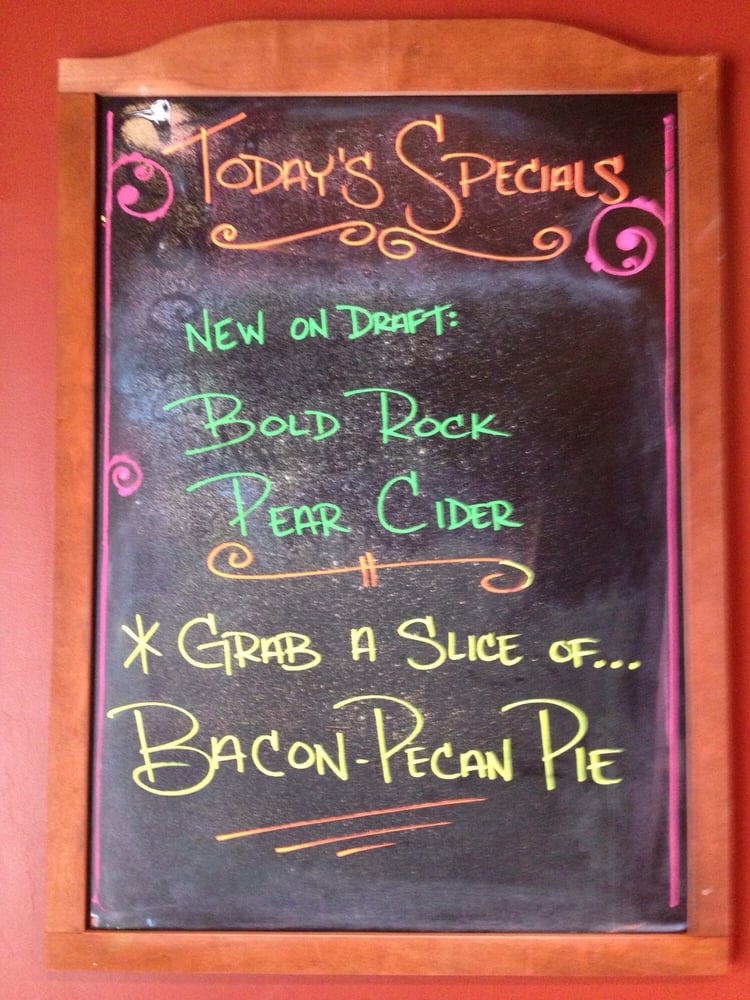 Today's Specials
New on Draft:
Bold Rock
Pear Cider
* Grab a Slice of...
Bacon-Pecan Pie